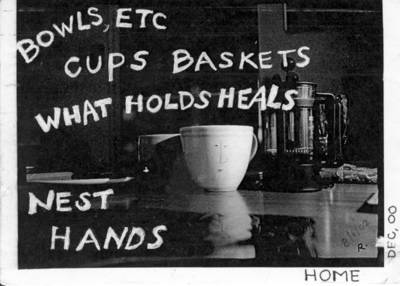 BOWLS, ETC
CUPS BASKETS
WHAT HOLDS HEALS
NEST
HANDS
R.
DEC, 00
HOME